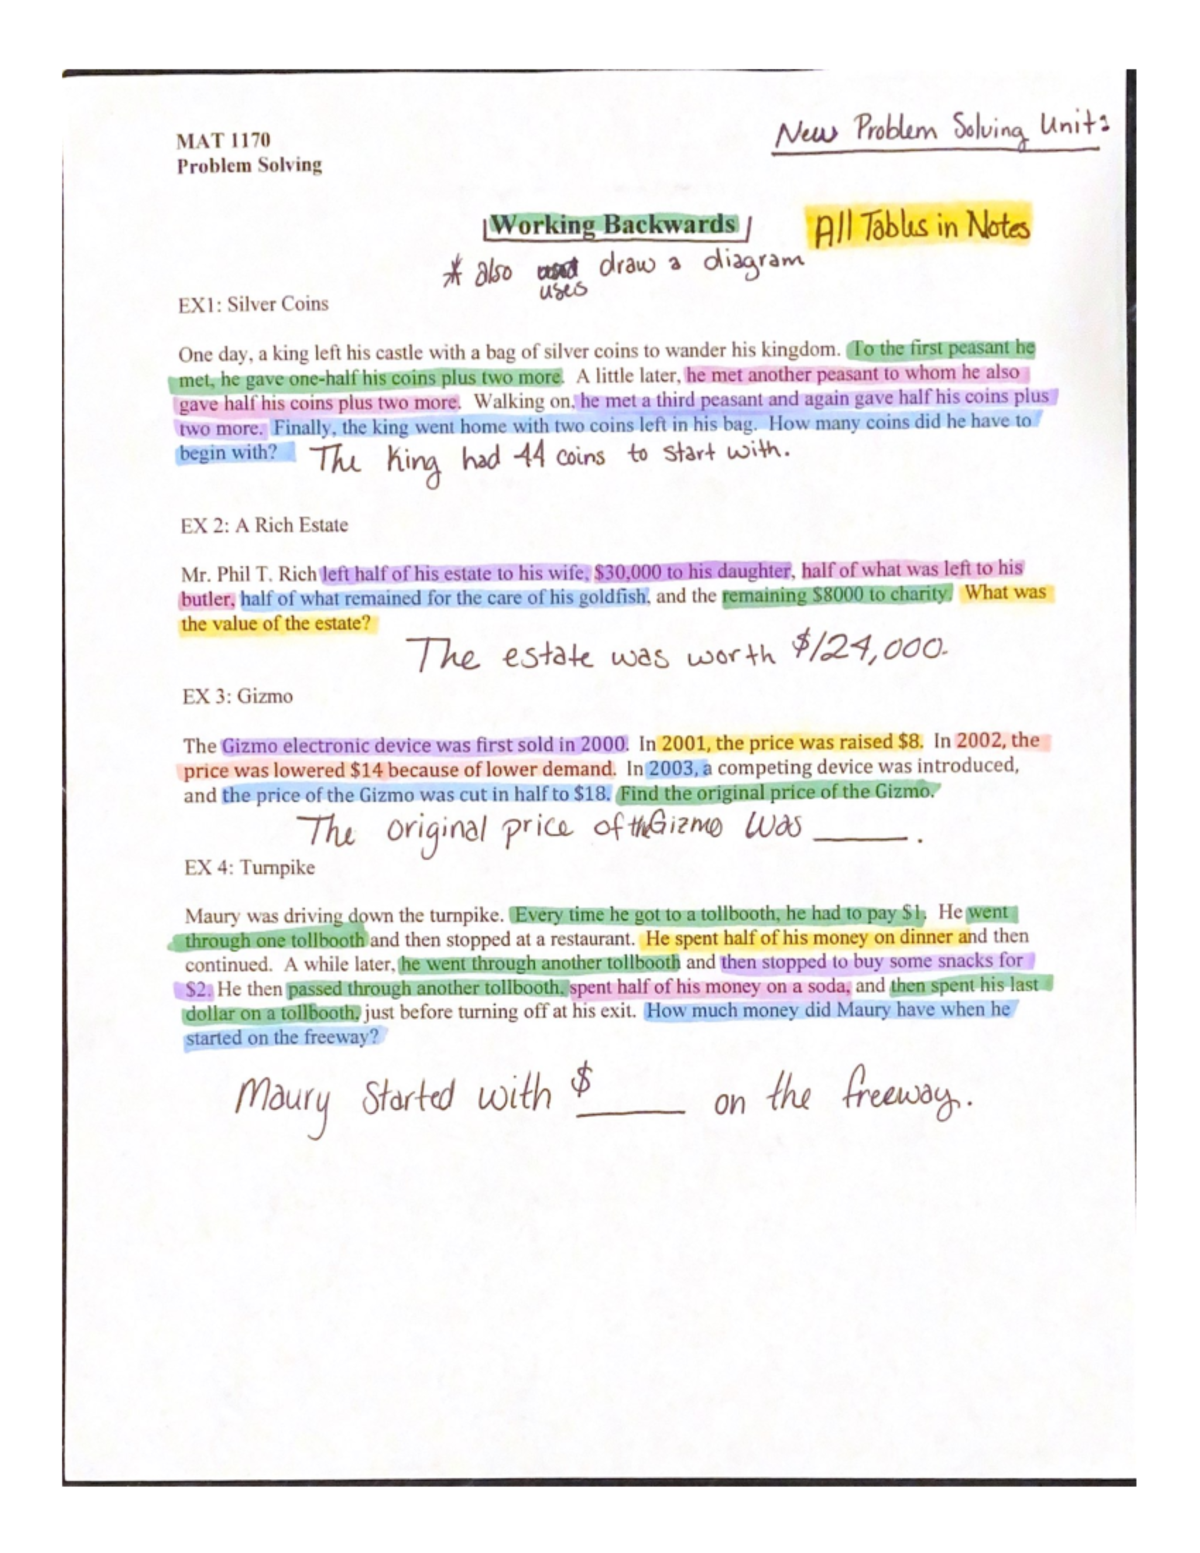 New Problem Solving Unit:
MAT 1170
Problem Solving
Working Backwards
All Tables in Notes
* also uses draw a diagram
EX1: Silver Coins
One day, a king left his castle with a bag of silver coins to wander his kingdom. To the first peasant he
met, he gave one-half his coins plus two more. A little later, he met another peasant to whom he also
gave half his coins plus two more. Walking on, he met a third peasant and again gave half his coins plus
two more. Finally, the king went home with two coins left in his bag. How many coins did he have to
begin with? The King had 44 coins to start with.
EX 2: A Rich Estate
Mr. Phil T. Rich left half of his estate to his wife, $30,000 to his daughter, half of what was left to his
butler, half of what remained for the care of his goldfish, and the remaining $8000 to charity. What was
the value of the estate?
The estate was worth $124,000.
EX 3: Gizmo
The Gizmo electronic device was first sold in 2000. In 2001, the price was raised $8. In 2002, the
price was lowered $14 because of lower demand. In 2003, a competing device was introduced,
and the price of the Gizmo was cut in half to $18. Find the original price of the Gizmo.
The original price of the Gizmo was ______.
EX 4: Turnpike
Maury was driving down the turnpike. Every time he got to a tollbooth, he had to pay $1. He went
through one tollbooth and then stopped at a restaurant. He spent half of his money on dinner and then
continued. A while later, he went through another tollbooth and then stopped to buy some snacks for
$2. He then passed through another tollbooth, spent half of his money on a soda, and then spent his last
dollar on a tollbooth, just before turning off at his exit. How much money did Maury have when he
started on the freeway?
Maury started with $______ on the freeway.